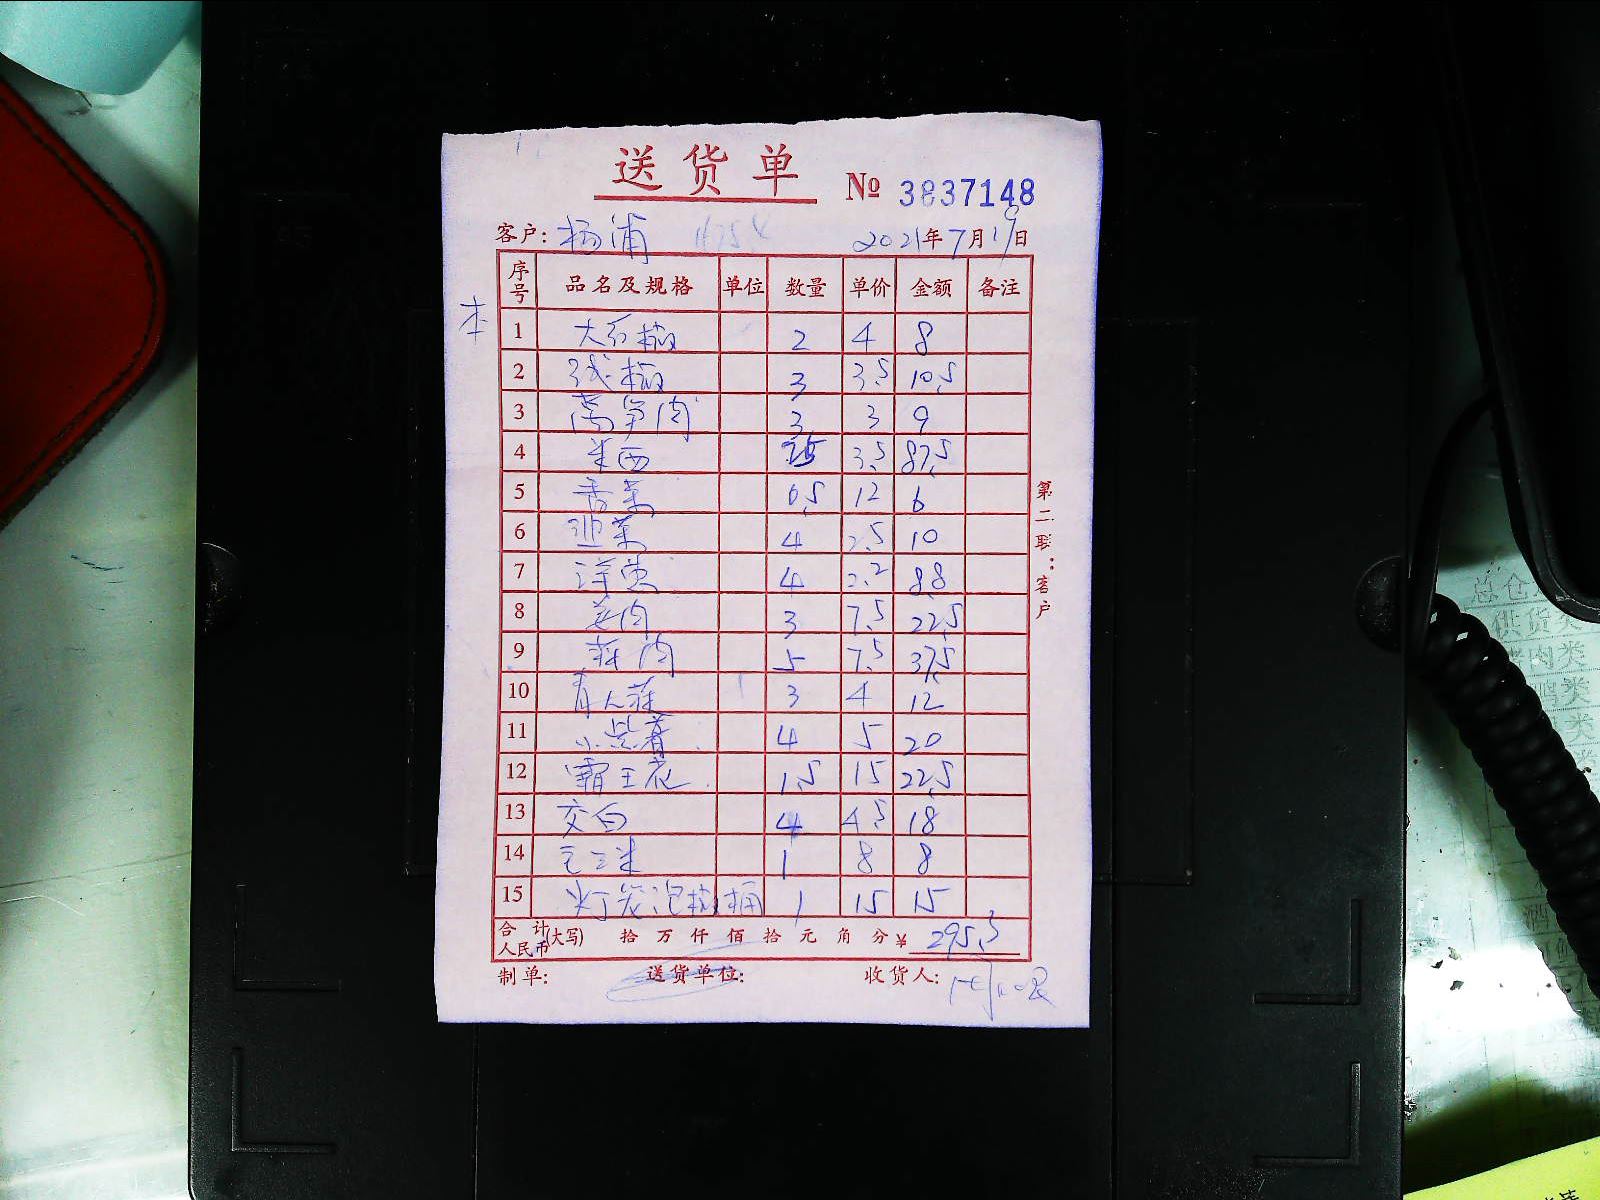 送货单 № 3837148
客户: 杨浦 2021年7月19日
本
序号 品名及规格 单位 数量 单价 金额 备注
1 大红椒 2 4 8
2 线椒 3 3.5 10.5
3 莴笋肉 3 3 9
4 米西 25 3.5 87.5
5 香菜 0.5 12 6
6 韭菜 4 2.5 10
7 洋葱 4 2.2 8.8
8 姜肉 3 7.5 22.5
9 蒜肉 5 7.5 37.5
10 青大蒜 3 4 12
11 小紫薯 4 5 20
12 霸王花 1.5 15 22.5
13 交白 4 4.5 18
14 玉米 1 8 8
15 灯笼泡椒 桶 1 15 15
合计人民币(大写) 拾 万 仟 佰 拾 元 角 分 ¥ 295.3
制单: 送货单位: 收货人:
第二联：客户
总仓
供货类
肉类